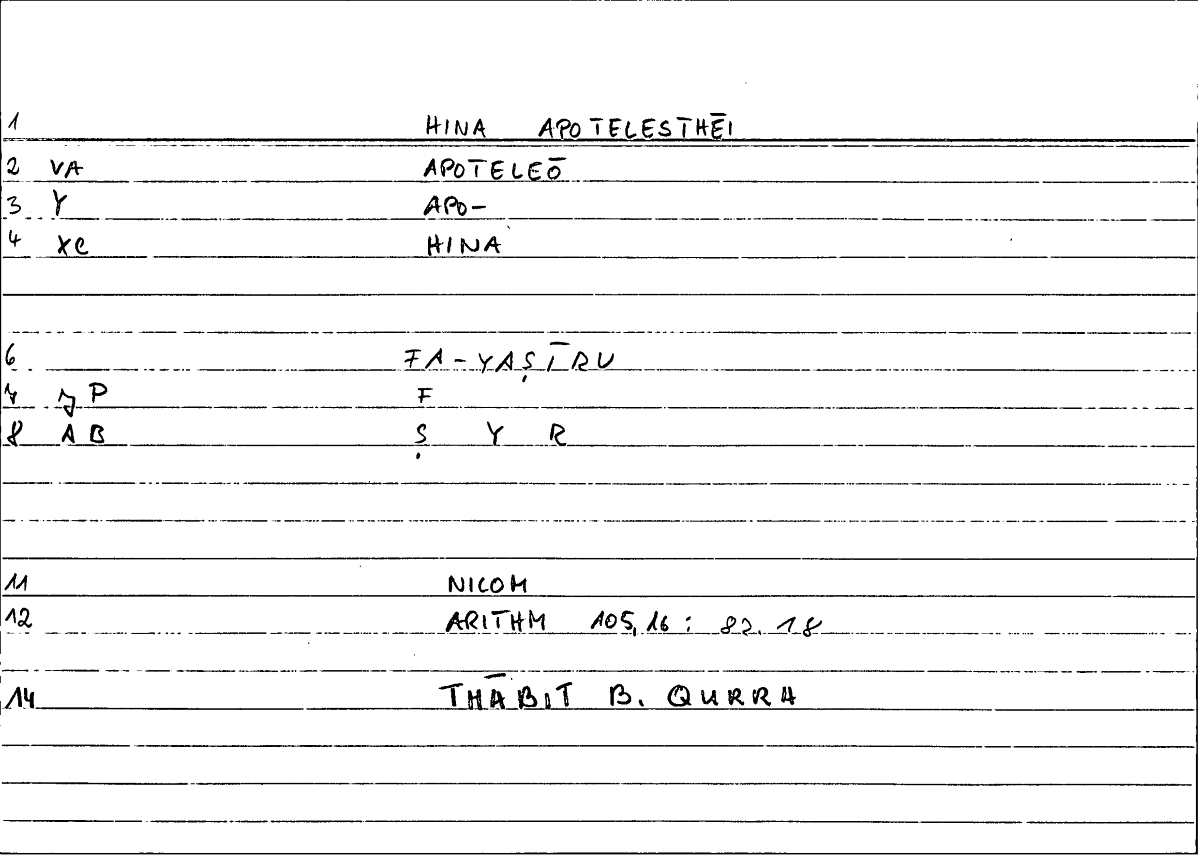 1 HINA APOTELESTHĒI
2 VA APOTELEŌ
3 Y APO-
4 XC HINA
6 FA-YAṢĪRU
7 P F
8 AB Ṣ Y R
11 NICOM
12 ARITHM 105,16: 18
14 THĀBIT B. QURRA